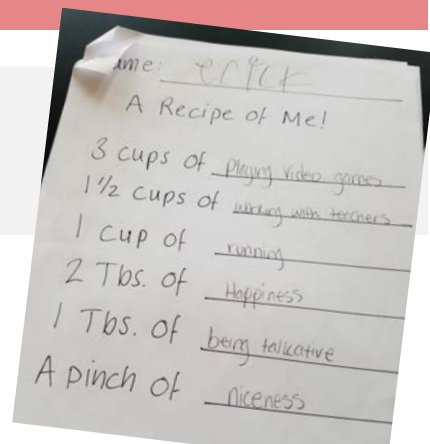 ame: erick
A Recipe of Me!
3 cups of Playing video games
1 1/2 cups of working with teachers
1 cup of running
2 Tbs. of Happiness
1 Tbs. of being talkative
A pinch of niceness